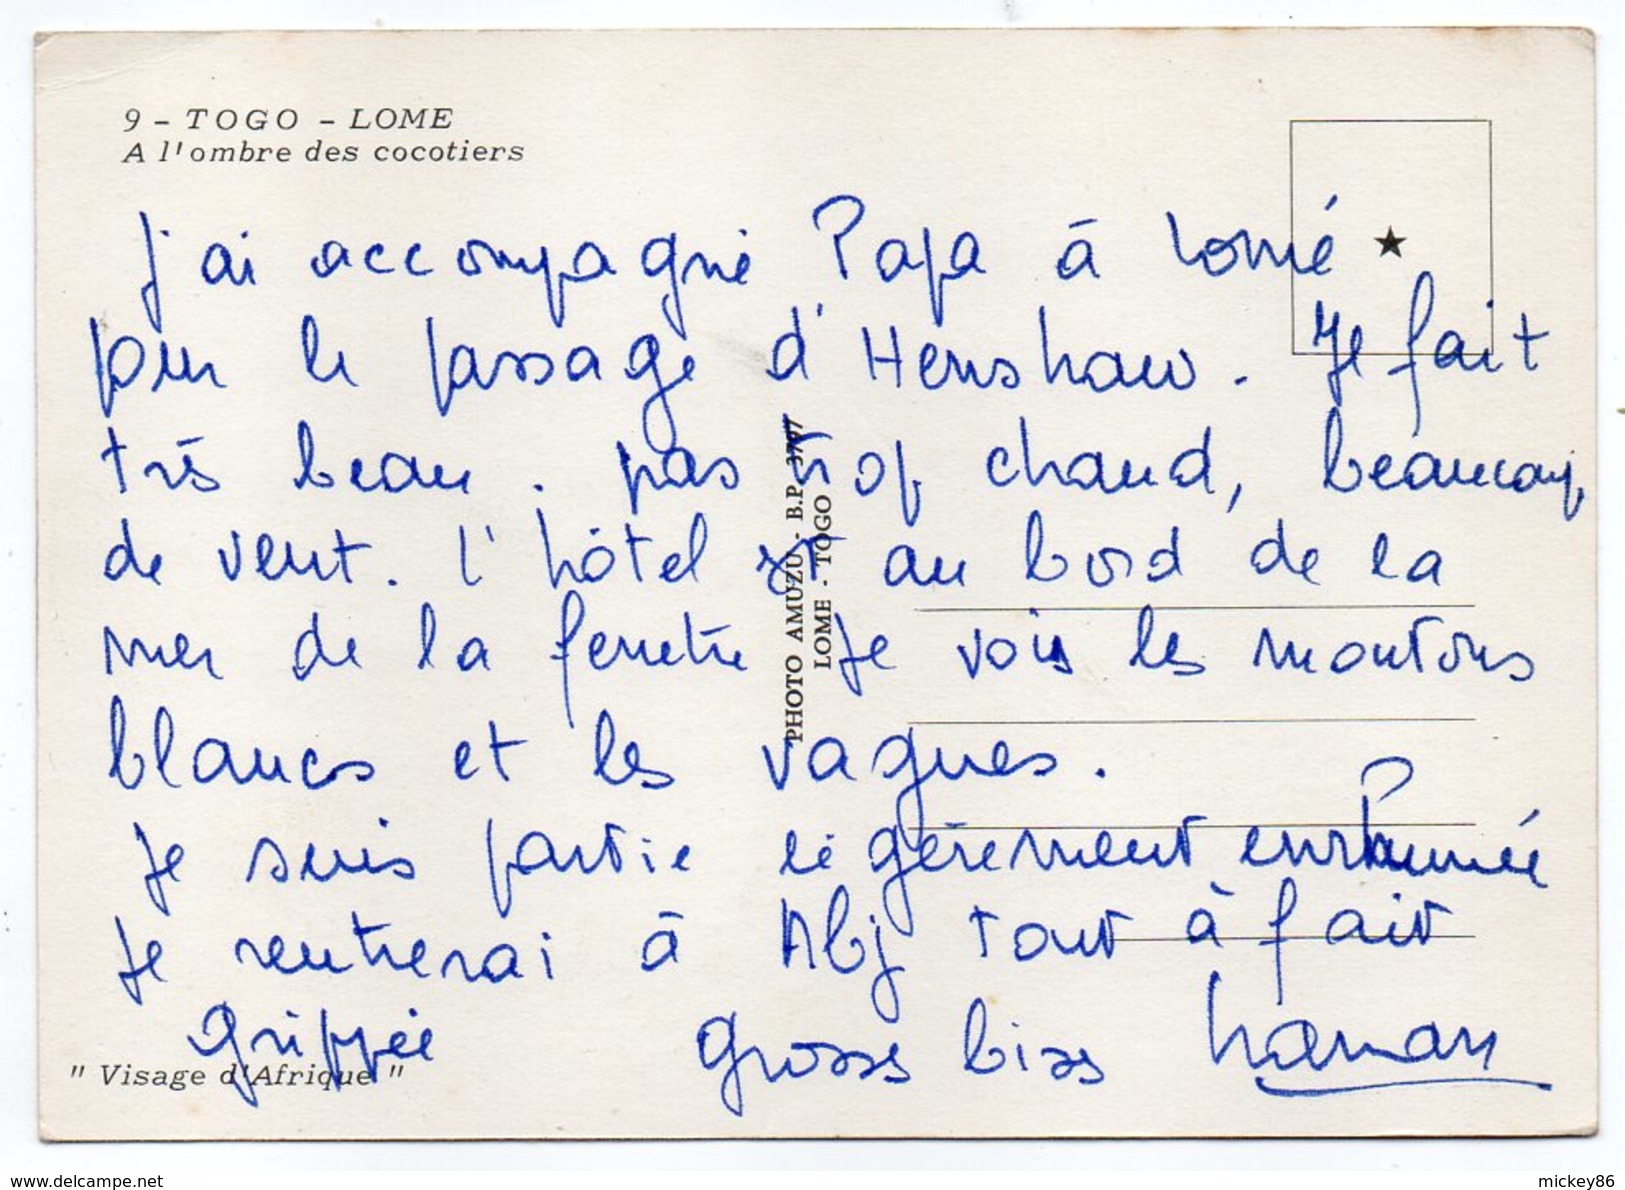 9 - TOGO - LOME
A l'ombre des cocotiers
J'ai accompagné Papa à Lomé
pour le passage d'Henshaw. Il fait
très beau. pas trop chaud, beaucoup
de vent. l'hôtel est au bord de la
mer de la fenêtre je vois les moutons
blancs et les vagues.
Je suis partie légèrement enrhumée
Je rentrerai à Abj tout à fait
grippée Grosses bises Maman
" Visage d'Afrique "
PHOTO AMUZU - B.P. 3797
LOME - TOGO
www.delcampe.net
mickey86